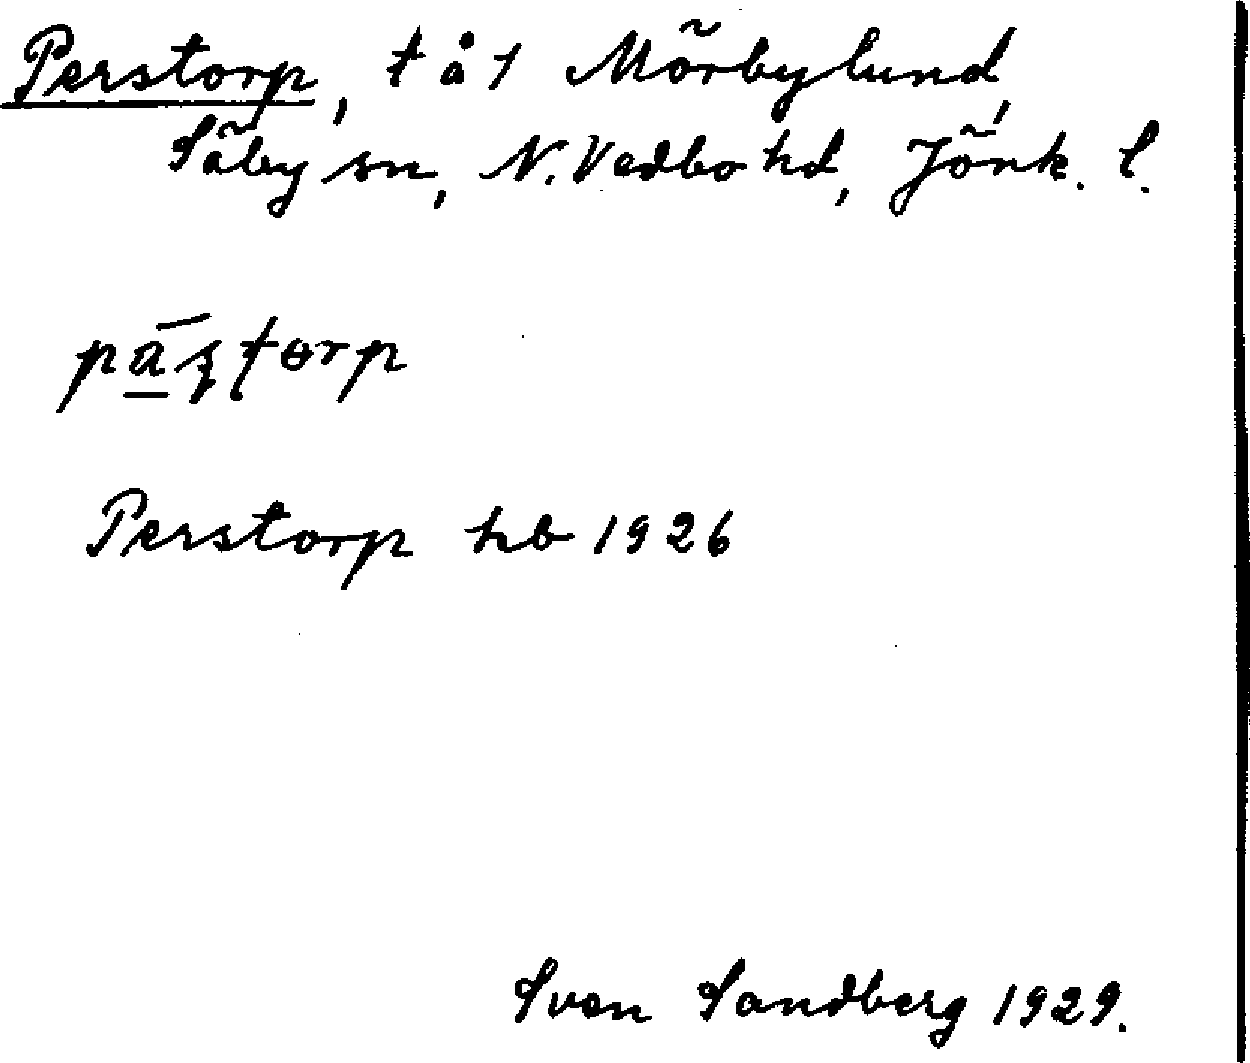 Perstorp, t å 1 Mörbylund,
Säby sn, N. Vedbo hd, Jönk. l.
Perstorp hb 1926
Sven Sandberg 1929.